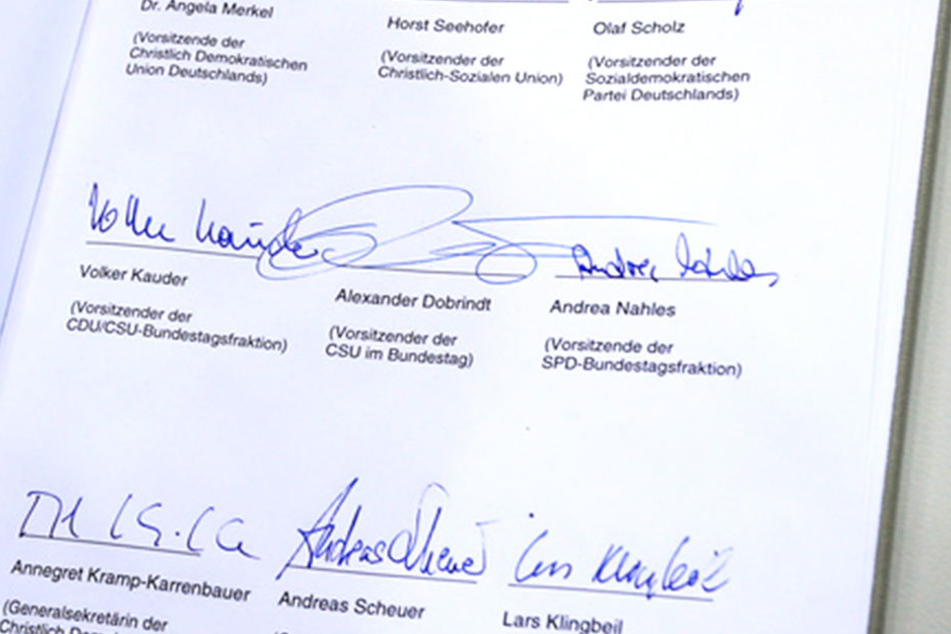 Dr. Angela Merkel
Horst Seehofer
Olaf Scholz
(Vorsitzende der
Christlich Demokratischen
Union Deutschlands)
(Vorsitzender der
Christlich-Sozialen Union)
(Vorsitzender der
Sozialdemokratischen
Partei Deutschlands)
Volker Kauder
Andrea Nahles
Volker Kauder
Alexander Dobrindt
Andrea Nahles
(Vorsitzender der
CDU/CSU-Bundestagsfraktion)
(Vorsitzender der
CSU im Bundestag)
(Vorsitzende der
SPD-Bundestagsfraktion)
Andreas Scheuer
Lars Klingbeil
Annegret Kramp-Karrenbauer
Andreas Scheuer
Lars Klingbeil
(Generalsekretärin der